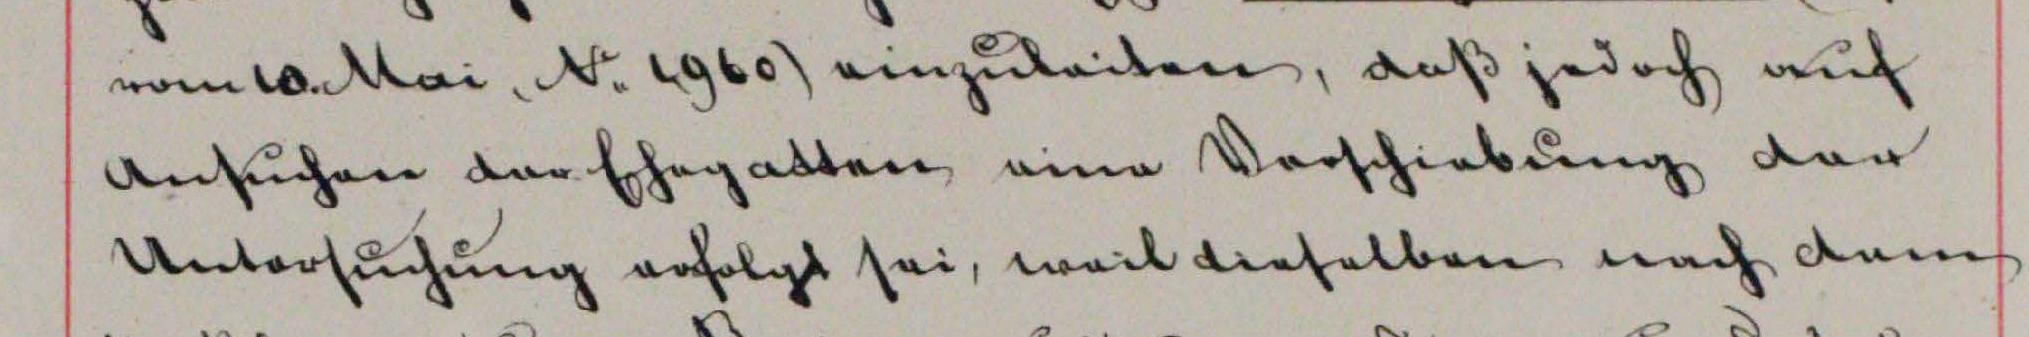 vom 10. Mai, N. 4960) einzuleiten, daß jedoch auf
Ansuchen der Ehegatten eine Verschiebung der
Untersuchung erfolgt sei, weil dieselben nach dem